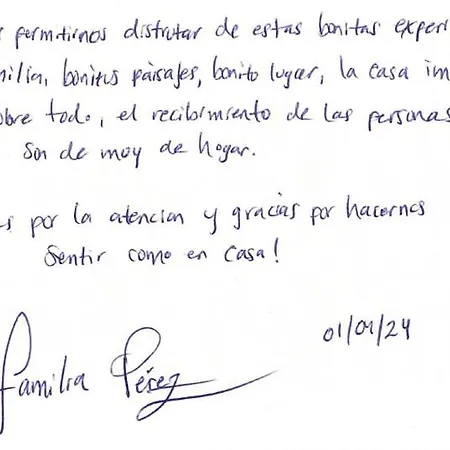 permitirnos disfrutar de estas bonitas experi
milia, bonitos paisajes, bonito lugar, la casa im
bre todo, el recibimiento de las personas
Son de muy de hogar.
s por la atencion y gracias por hacernos
Sentir como en casa!
01/01/24
Familia Pérez